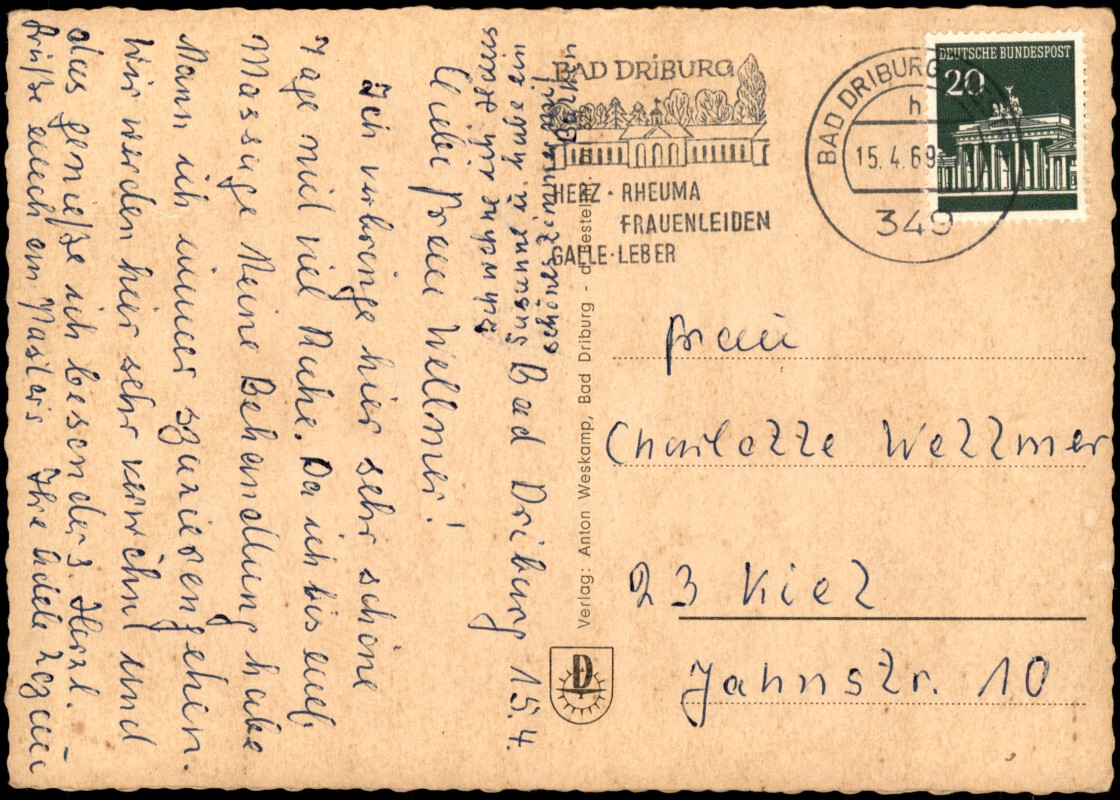 Bad Driburg 15.4.
Liebe Frau Wellmer!
Ich verbringe hier sehr schöne
Tage mit viel Ruhe. Da ich bis auf
Massage Keine Behandlung habe
Kann ich immer spazierengehen.
Wir werden hier sehr verwöhnt und
das genieße ich besonders. Herzl.
Grüße auch an Pastors Ihre Adele
Wir wohnen im Haus
Susanne u. habe ein
schönes Zimmer mit
Balkon
BAD DRIBURG
HERZ · RHEUMA
FRAUENLEIDEN
GALLE · LEBER
BAD DRIBURG
h
15.4.69
349
DEUTSCHE BUNDESPOST
20
Verlag: Anton Weskamp, Bad Driburg - d Bestellnr.
D
Frau
Charlotte Wellmer
23 Kiel
Jahnstr. 10